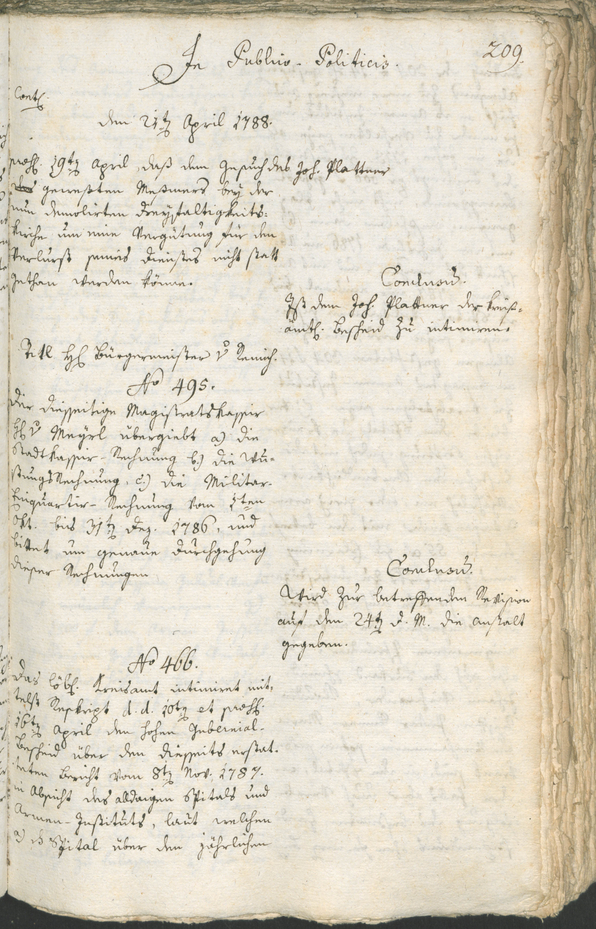 In Publico-Politicis.
209.
Cont.
den 21ten April 1788.
19ten April, daß dem Gesuch des Joh. Plattner
gewesten Meßmers bey der
nun demolirten Dreyfaltigkeits-
kirche um eine Vergütung für den
Verlurst seines Dienstes nicht statt
gethan werden könne.
Conclusum.
Ist dem Joh. Plattner der kreis-
ämtl. Bescheid zu intimiren.
Titl H. Bürgermeister v.
No 495.
Der diesseitige Magistratskassier
H. v Meyrl übergiebt a) die
Stadtkassier-Rechnung b) die
Rechnung, c) die Militar-
Einquartir-Rechnung vom 1ten
Okt. bis 31ten Dez. 1786, und
bittet um genaue Durchgehung
dieser Rechnungen
Conclusum.
Wird zur betreffenden Revision
auf den 24ten d. M. die Anstalt
gegeben.
No 466.
Das löbl. Kreisamt intimiret mit-
telst Reskript d. d. 10ten et
16ten April den hohen Gubernial-
Bescheid über den diesseits erstat-
teten Bericht vom 8ten Nov. 1787.
in Absicht des alldaigen Spitals und
Armen-Instituts, laut welchen
a) Spital über den jährlichen